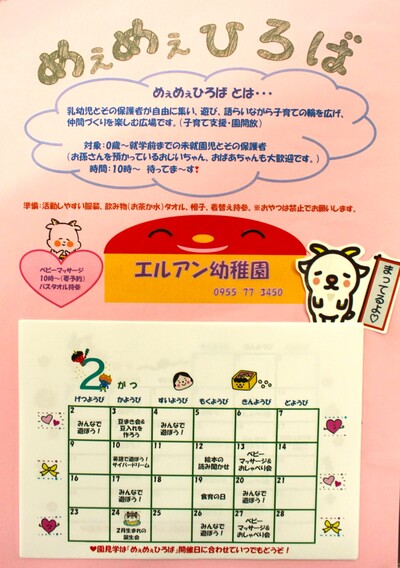 めぇめぇひろば
めぇめぇひろば とは・・・
乳幼児とその保護者が自由に集い、遊び、語らいながら子育ての輪を広げ、
仲間づくりを楽しむ広場です。(子育て支援・園開放)
対象:0歳～就学前までの未就園児とその保護者
(お孫さんを預かっているおじいちゃん、おばあちゃんも大歓迎です。)
時間:10時～ 待ってま～す❣
準備:活動しやすい服装、飲み物(お茶か水)タオル、帽子、着替え持参。※おやつは禁止でお願いします。
ベビーマッサージ
10時～(要予約)
バスタオル持参
エルアン幼稚園
0955 77 3450
まってるよ♡
2がつ
げつようび かようび すいようび もくようび きんようび どようび
2 3 4 5 6 7
みんなで
遊ぼう!
豆まき会&
豆入れを
作ろう
みんなで
遊ぼう!
9 10 11 12 13 14
英語で遊ぼう!
サイバードリーム
絵本の
読み聞かせ
ベビー
マッサージ&
おしゃべり会
16 17 18 19 20 21
みんなで
遊ぼう!
食育の日
みんなで
遊ぼう!
23 24 25 26 27 28
2月生まれの
誕生会
みんなで
遊ぼう!
ベビー
マッサージ&
おしゃべり会
♥園見学は「めぇめぇひろば」開催日に合わせていつでもどうぞ!